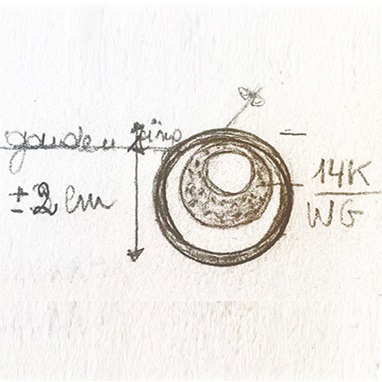 gouden ring
± 2 cm
14K
WG